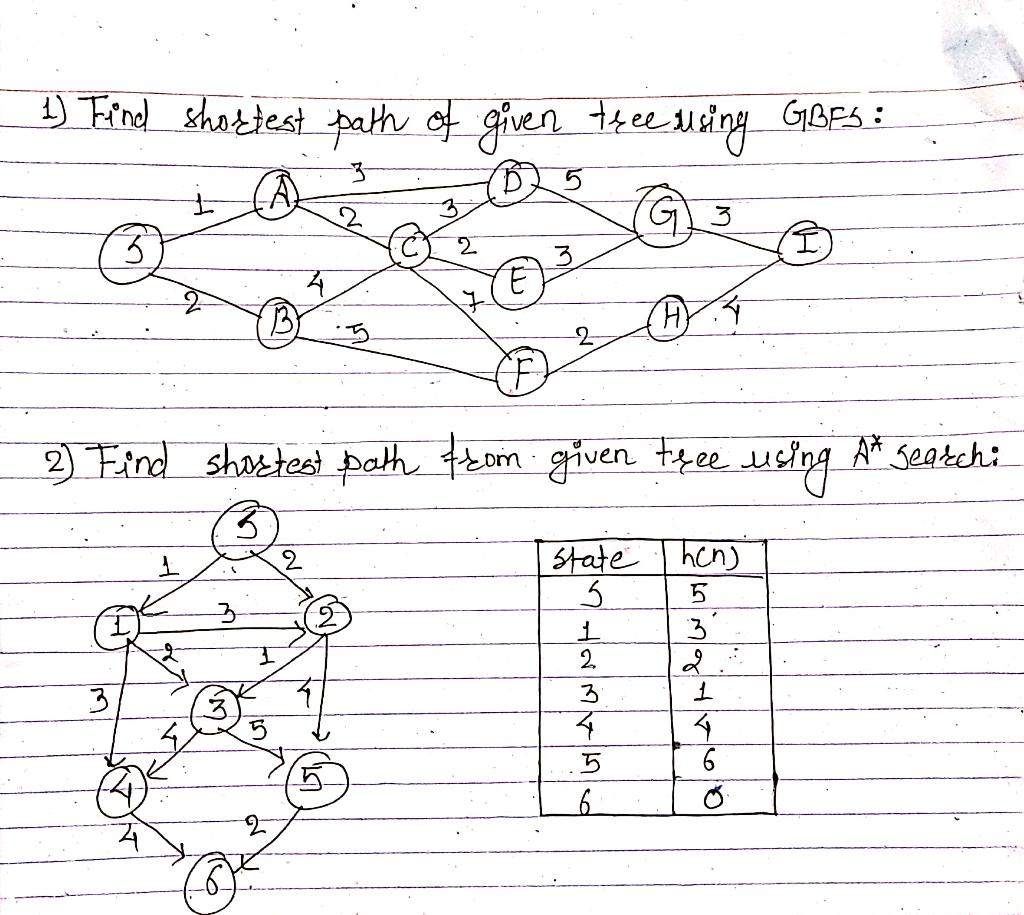 1) Find shortest path of given tree using GBFS :
3 D 5
A
1 2 3 G 3
S C 2 I
3
4 E
2 7
B 5 H 4
2
F
2) Find shortest path from given tree using A* search:
S
1 2
1 3 2
2 1
3 4
3
4 5
4 5
4 2
6
state h(n)
S 5
1 3
2 2
3 1
4 4
5 6
6 0